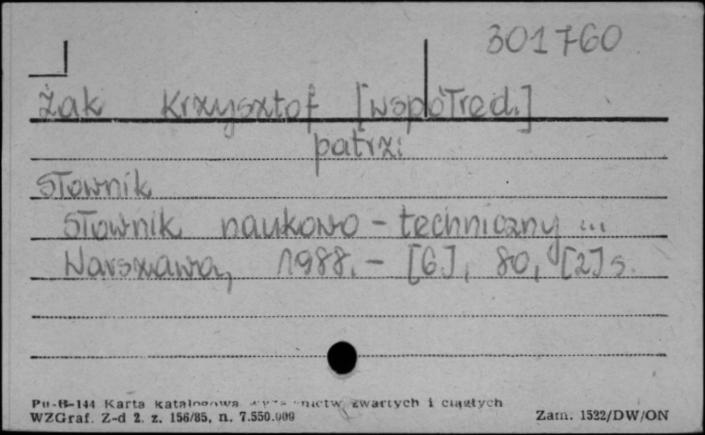 301760
Żak Krzysztof [współred.]
patrz:
Słownik
Słownik naukowo-techniczny ...
Warszawa, 1988. - [6], 80, [2] s.
Pu-B-144 Karta katalogowa zwartych i ciągłych
WZGraf. Z-d 2. z. 156/85, n. 7.550.000 Zam. 1522/DW/ON